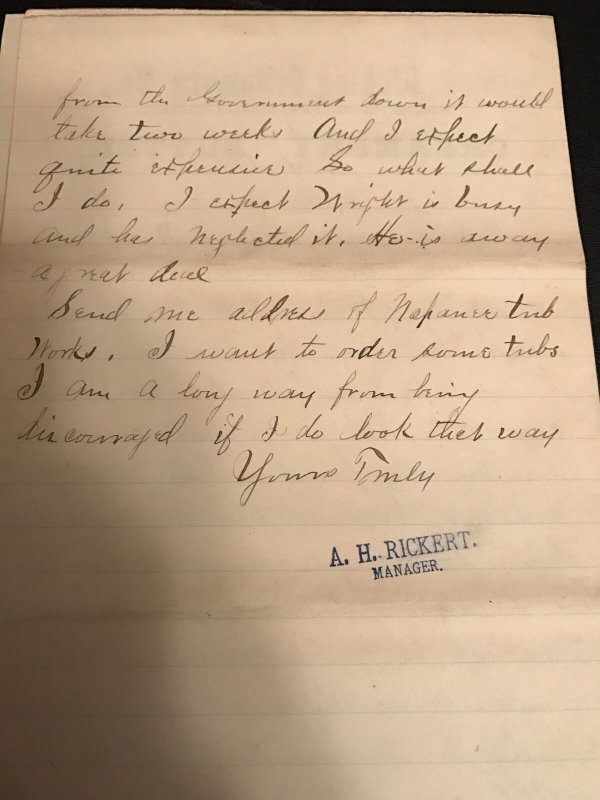 from the Government down it would
take two weeks And I expect
quite expensive So what shall
I do. I expect Wright is busy
and has neglected it. He is away
a great deal
Send me address of Napanee tub
Works. I want to order some tubs
I am a long way from being
discouraged if I do look that way
Yours Truly
A. H. RICKERT.
MANAGER.